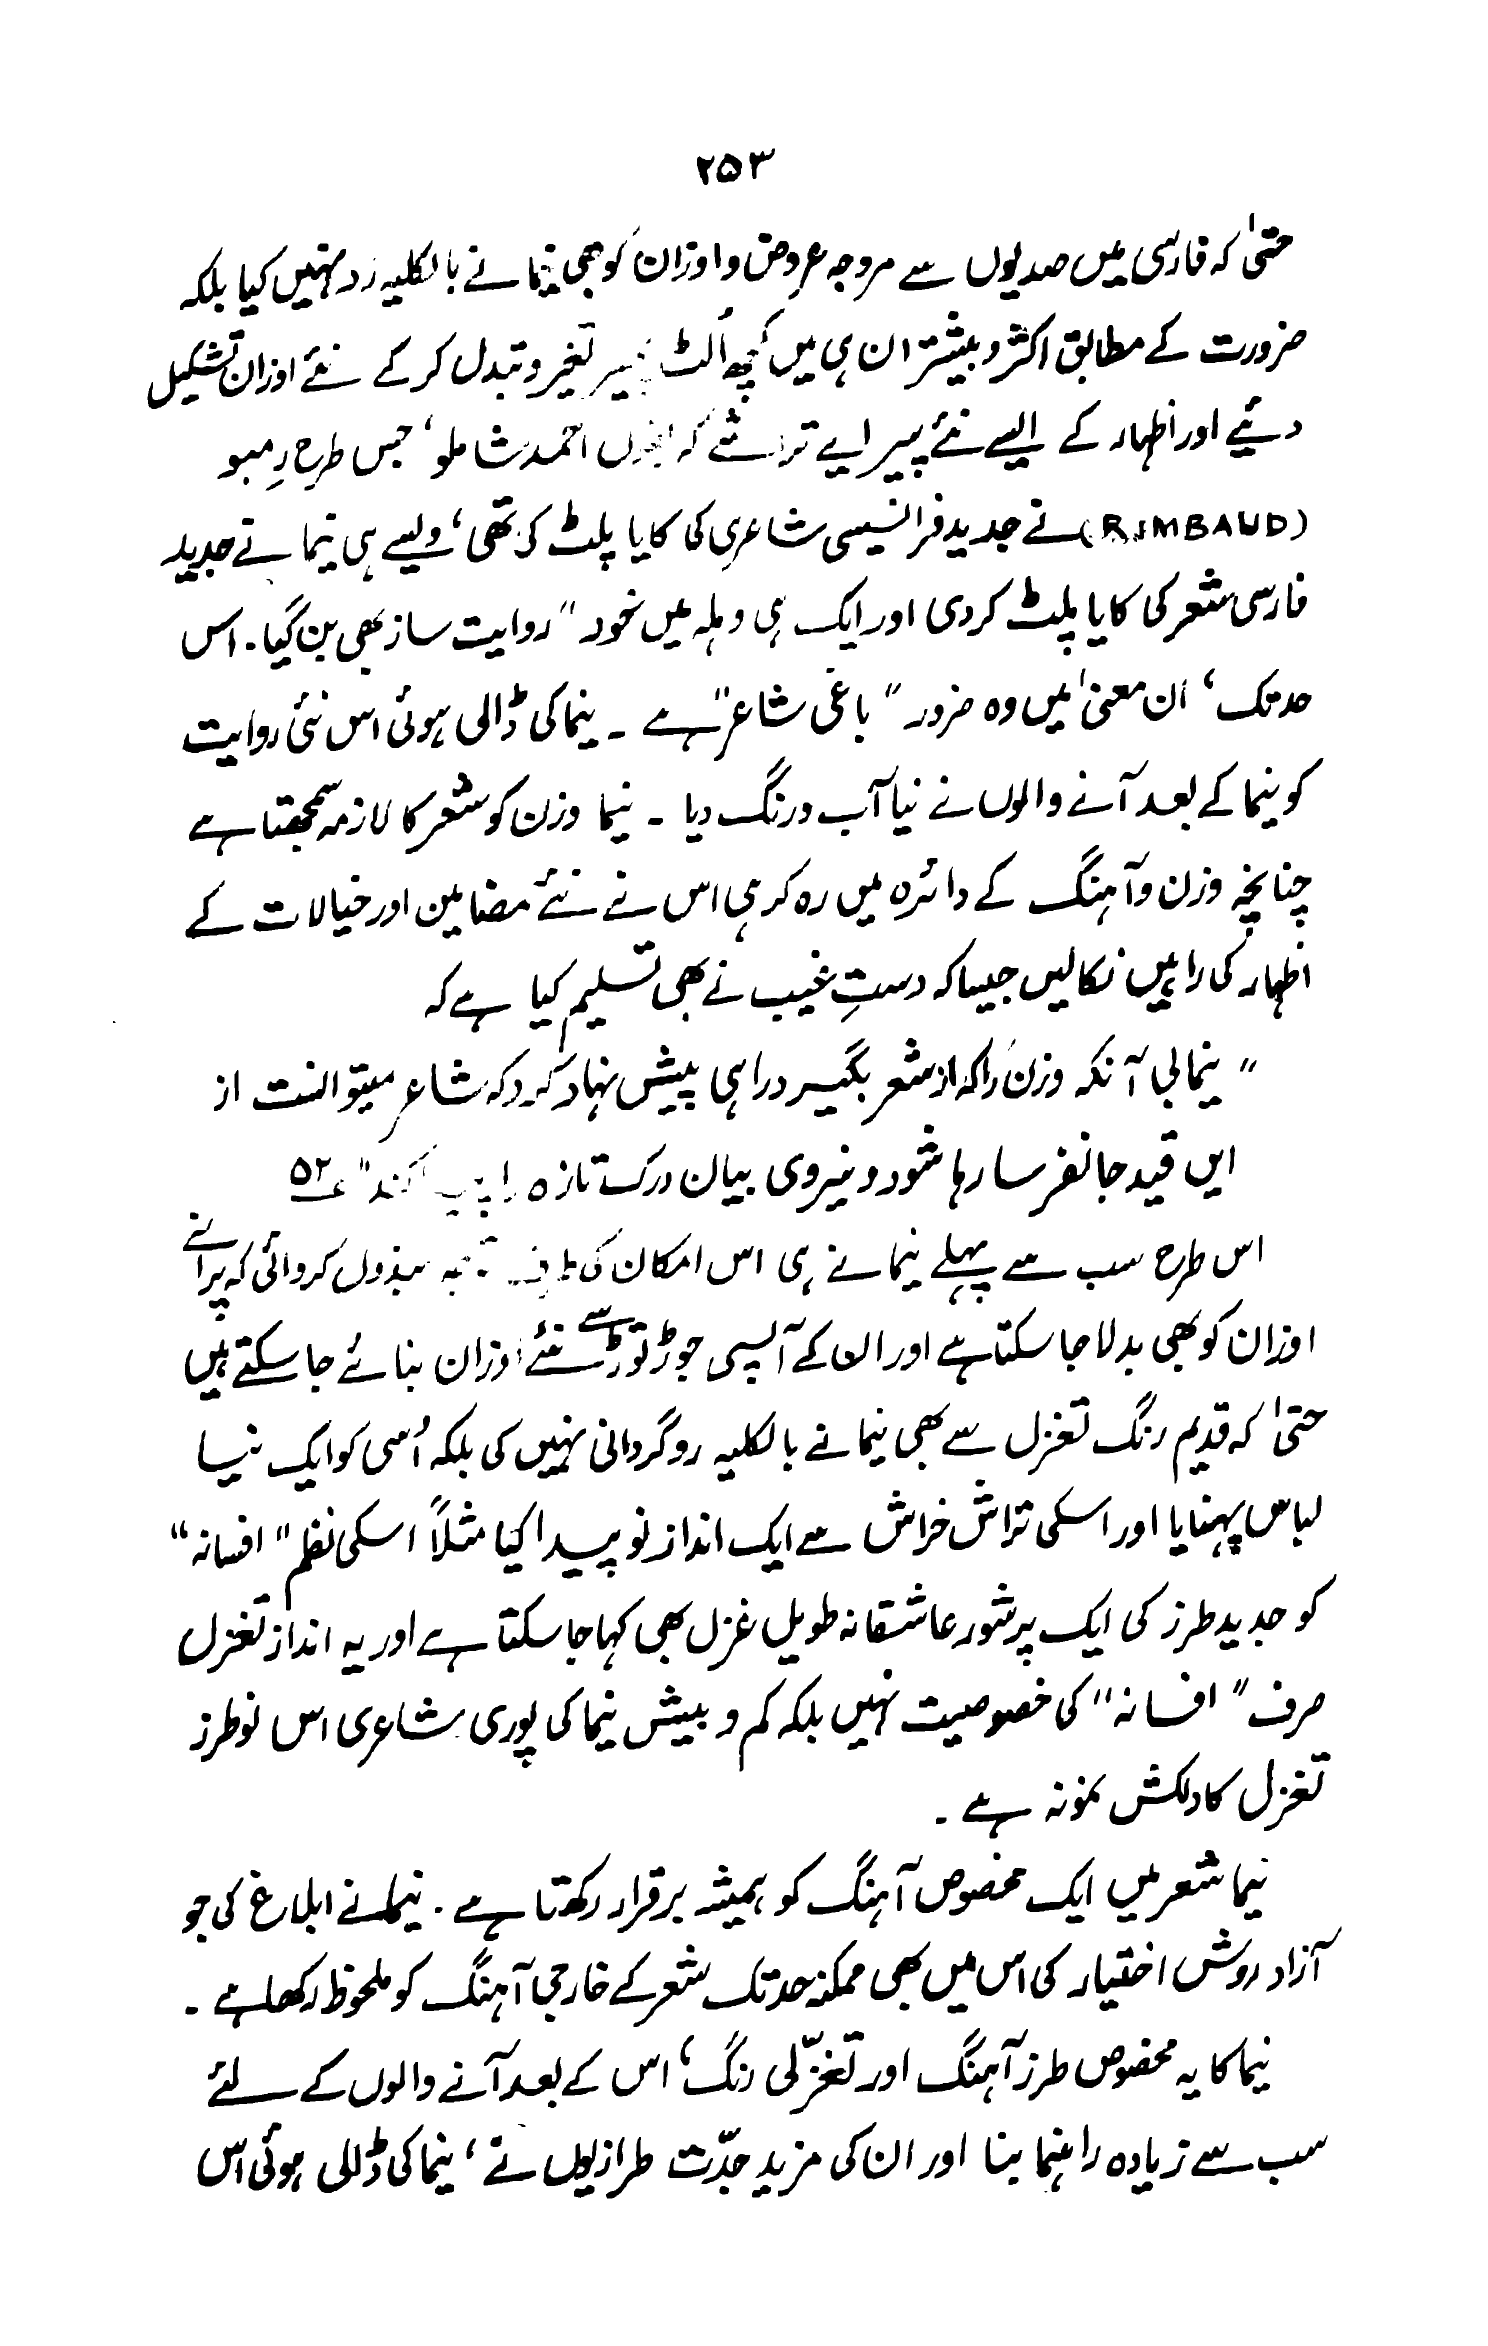 ۲۵۳
حتیٰ کہ فارسی میں صدیوں سے مروجہ عروض و اوزان کو بھی نیما نے بالکلیہ رد نہیں کیا بلکہ
ضرورت کے مطابق اکثر و بیشتر ان ہی میں کچھ اُلٹ پھیر تغیر و تبدل کر کے نئے اوزان تشکیل
دئیے اور اظہار کے ایسے نئے پیرایے تراشے کہ بقول احمد شاملو، جس طرح رِمبو
(RIMBAUD) نے جدید فرانسیسی شاعری کی کایا پلٹ کی تھی، ویسے ہی نیما نے جدید
فارسی شعر کی کایا پلٹ کر دی اور ایک ہی وہلہ میں خود "روایت ساز بھی بن گیا۔ اس
حد تک، ان معنیٰ میں وہ ضرور "باغی شاعر" ہے ۔ نیما کی ڈالی ہوئی اس نئی روایت
کو نیما کے بعد آنے والوں نے نیا آب و رنگ دیا ۔ نیما وزن کو شعر کا لازمہ سمجھتا ہے
چنانچہ وزن و آہنگ کے دائرہ میں رہ کر ہی اس نے نئے مضامین اور خیالات کے
اظہار کی راہیں نکالیں جیسا کہ دستِ غیب نے بھی تسلیم کیا ہے کہ
"نیما بی آنکہ وزن را کہ از شعر بگیرد راہی پیش نہاد کرد کہ شاعر میتوانست از
ایں قید جانفرسا رہا شود و نیروی بیان درک تازہ را کند" ؏۵۲
اس طرح سب سے پہلے نیما نے ہی اس امکان کی طرف توجہ مبذول کروائی کہ پرانے
اوزان کو بھی بدلا جا سکتا ہے اور ان کے آپسی جوڑ توڑ سے نئے اوزان بنائے جا سکتے ہیں
حتیٰ کہ قدیم رنگ تغزل سے بھی نیما نے بالکلیہ روگردانی نہیں کی بلکہ اُسی کو ایک نیا
لباس پہنایا اور اسکی تراش خراش سے ایک انداز نو پیدا کیا مثلاً اسکی نظم "افسانہ"
کو جدید طرز کی ایک پرشور عاشقانہ طویل غزل بھی کہا جا سکتا ہے اور یہ انداز تغزل
صرف "افسانہ" کی خصوصیت نہیں بلکہ کم و بیش نیما کی پوری شاعری اس نو طرز
تغزل کا دلکش نمونہ ہے ۔
نیما شعر میں ایک مخصوص آہنگ کو ہمیشہ برقرار رکھتا ہے ۔ نیما نے ابلاغ کی جو
آزاد روش اختیار کی اس میں بھی ممکنہ حد تک شعر کے خارجی آہنگ کو ملحوظ رکھا ہے ۔
نیما کا یہ مخصوص طرز آہنگ اور تغزّلی رنگ، اس کے بعد آنے والوں کے لئے
سب سے زیادہ راہنما بنا اور ان کی مزید جدّت طرازیوں نے، نیما کی ڈالی ہوئی اس